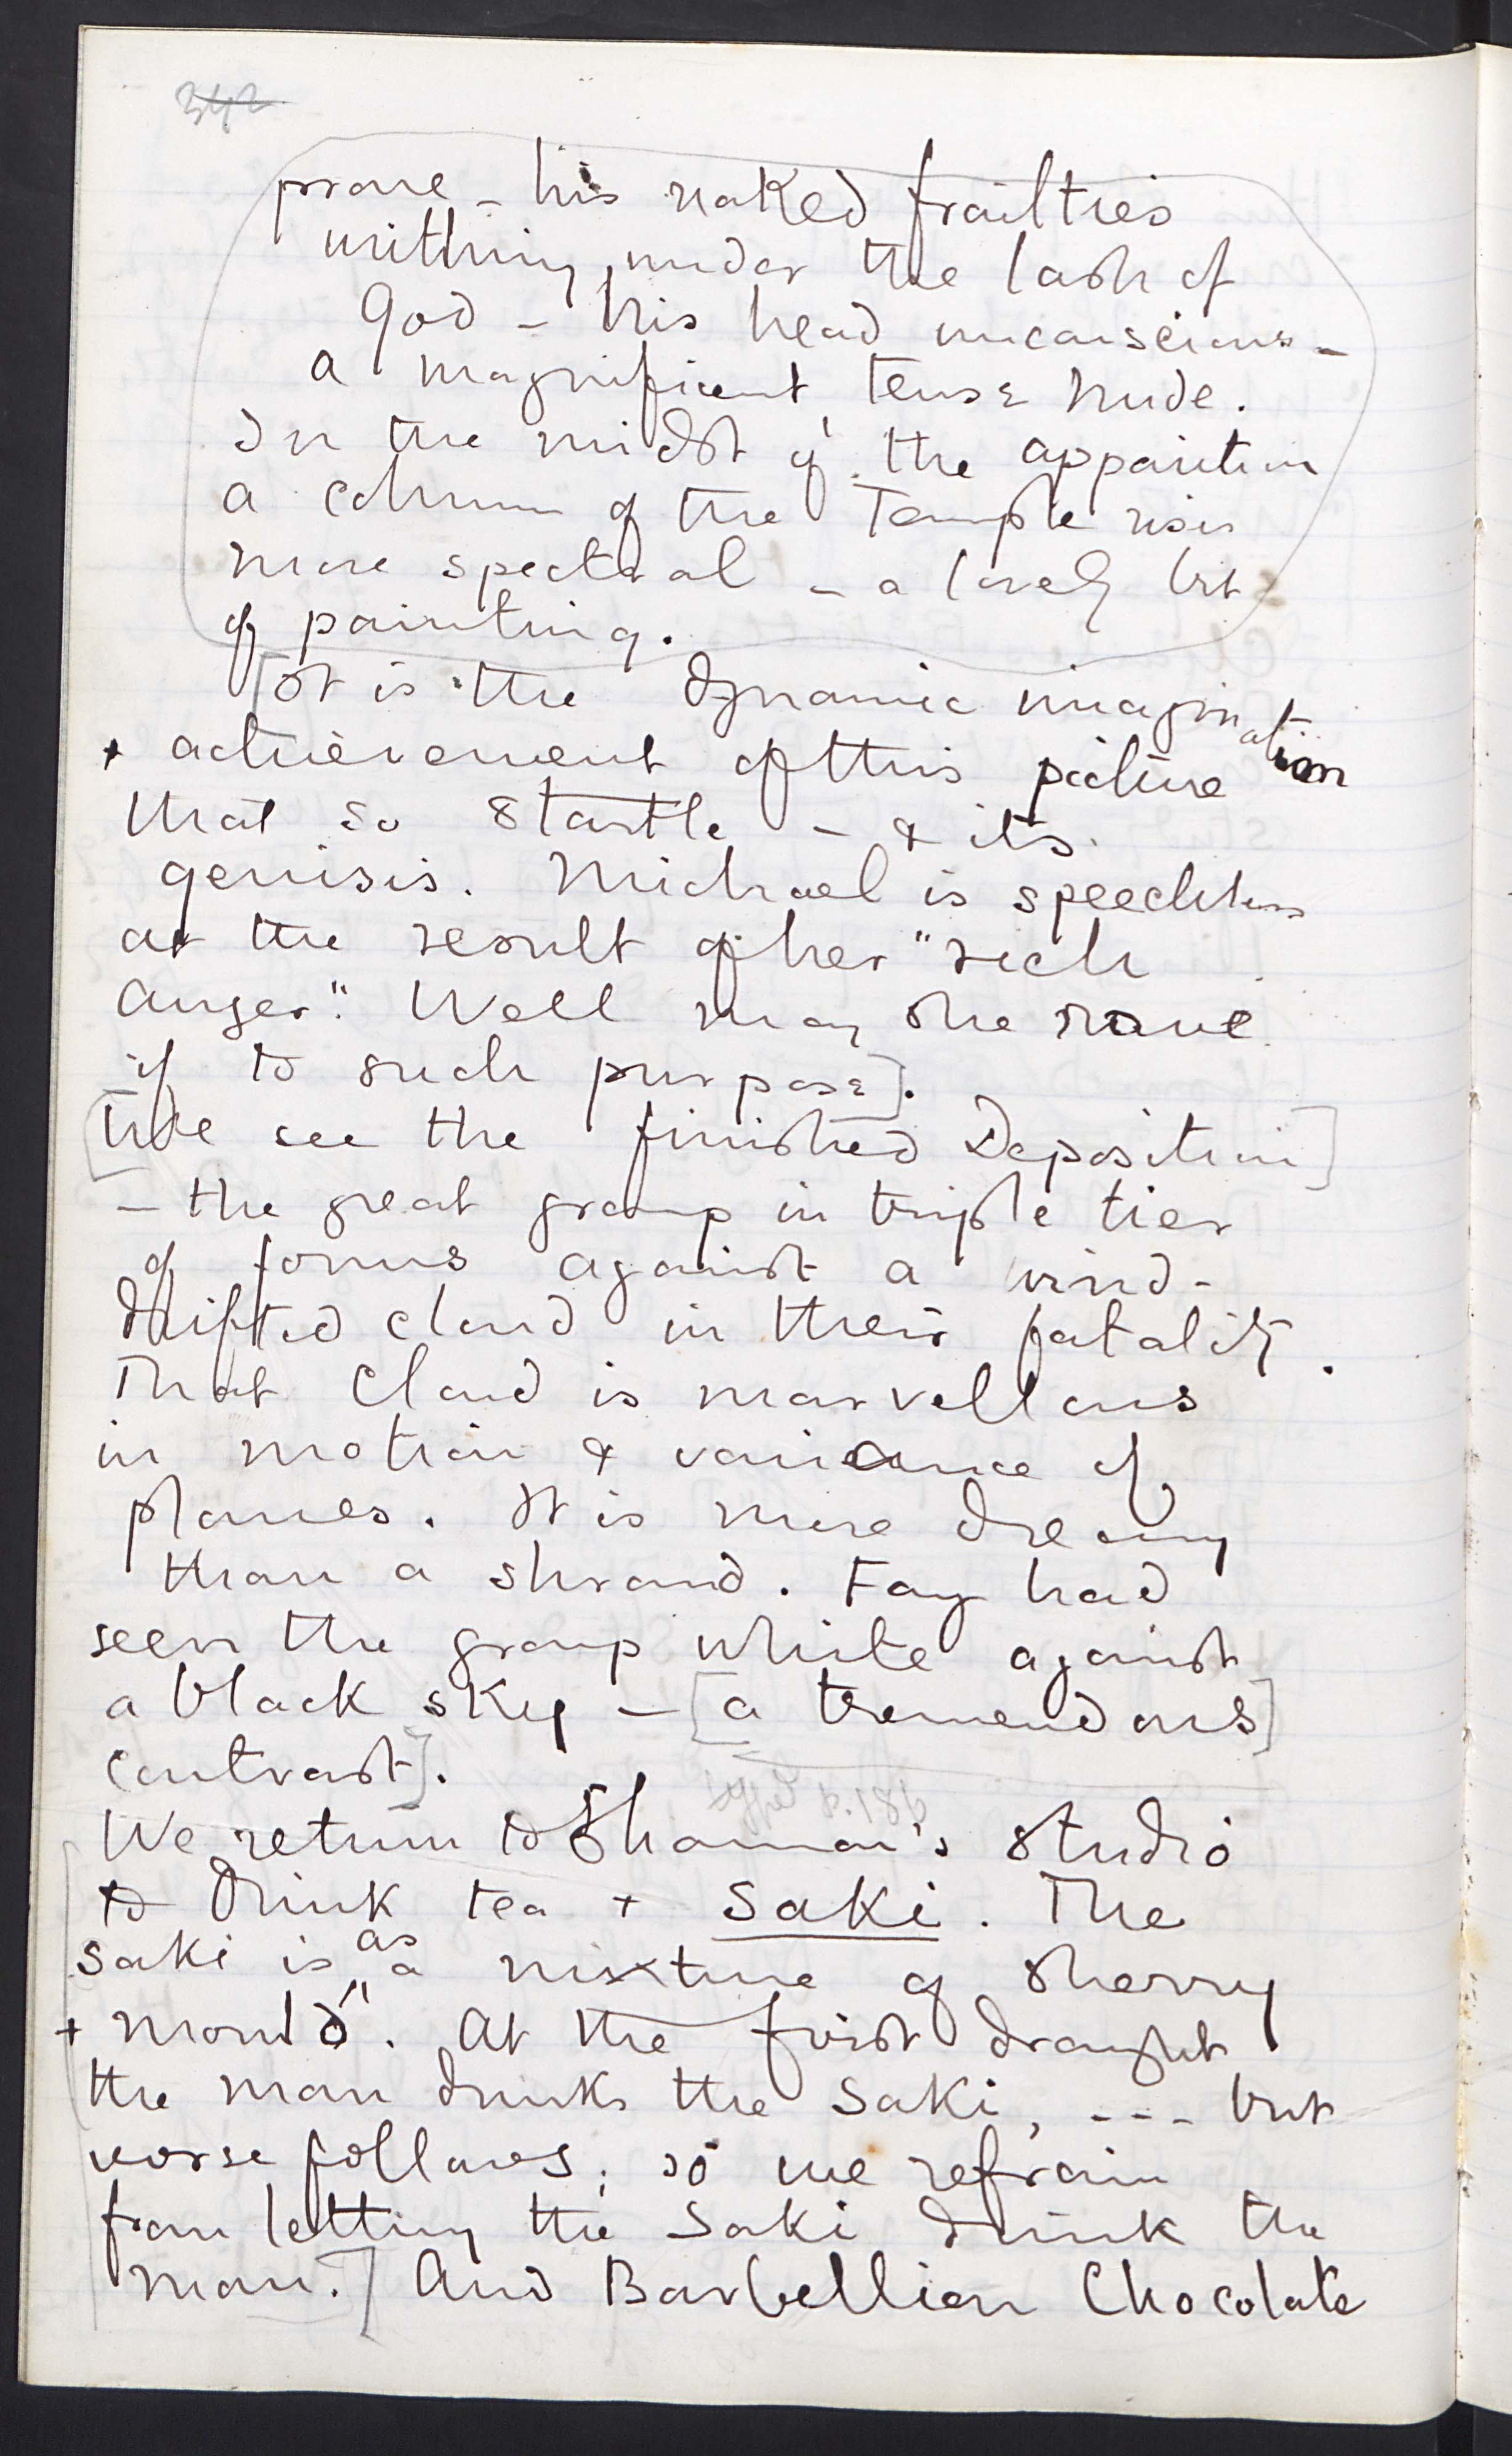 342
prone – his naked frailties
writhing under the lash of
God – his head unconscious –
a magnificent, tense nude.
In the midst of the apparition
a column of the Temple rises
more spectral – a lovely bit
of painting.
[It is the dynamic imagination
+ achievement of this picture
that so startle – & its
genisis. Michael is speechless
at the result of her "rich
anger". Well may she rave
if to such purpose].
[We see the finished Deposition]
– the great group in triple tier
of forms against a wind-
drifted cloud in their fatality.
That cloud is marvellous
in motion & variance of
planes. It is more dreamy
than a shroud. Fay had
seen the group white against
a black sky – [a tremendous]
contrast].
typed p. 186
We return to Shannon's studio
to drink tea + Saki. The
saki is as "a mixture of sherry
+ mould". At the first draught
the man drinks the Saki, --- but
worse follows; so we refrain
from letting the Saki drink the
man.] And Barbellion Chocolate